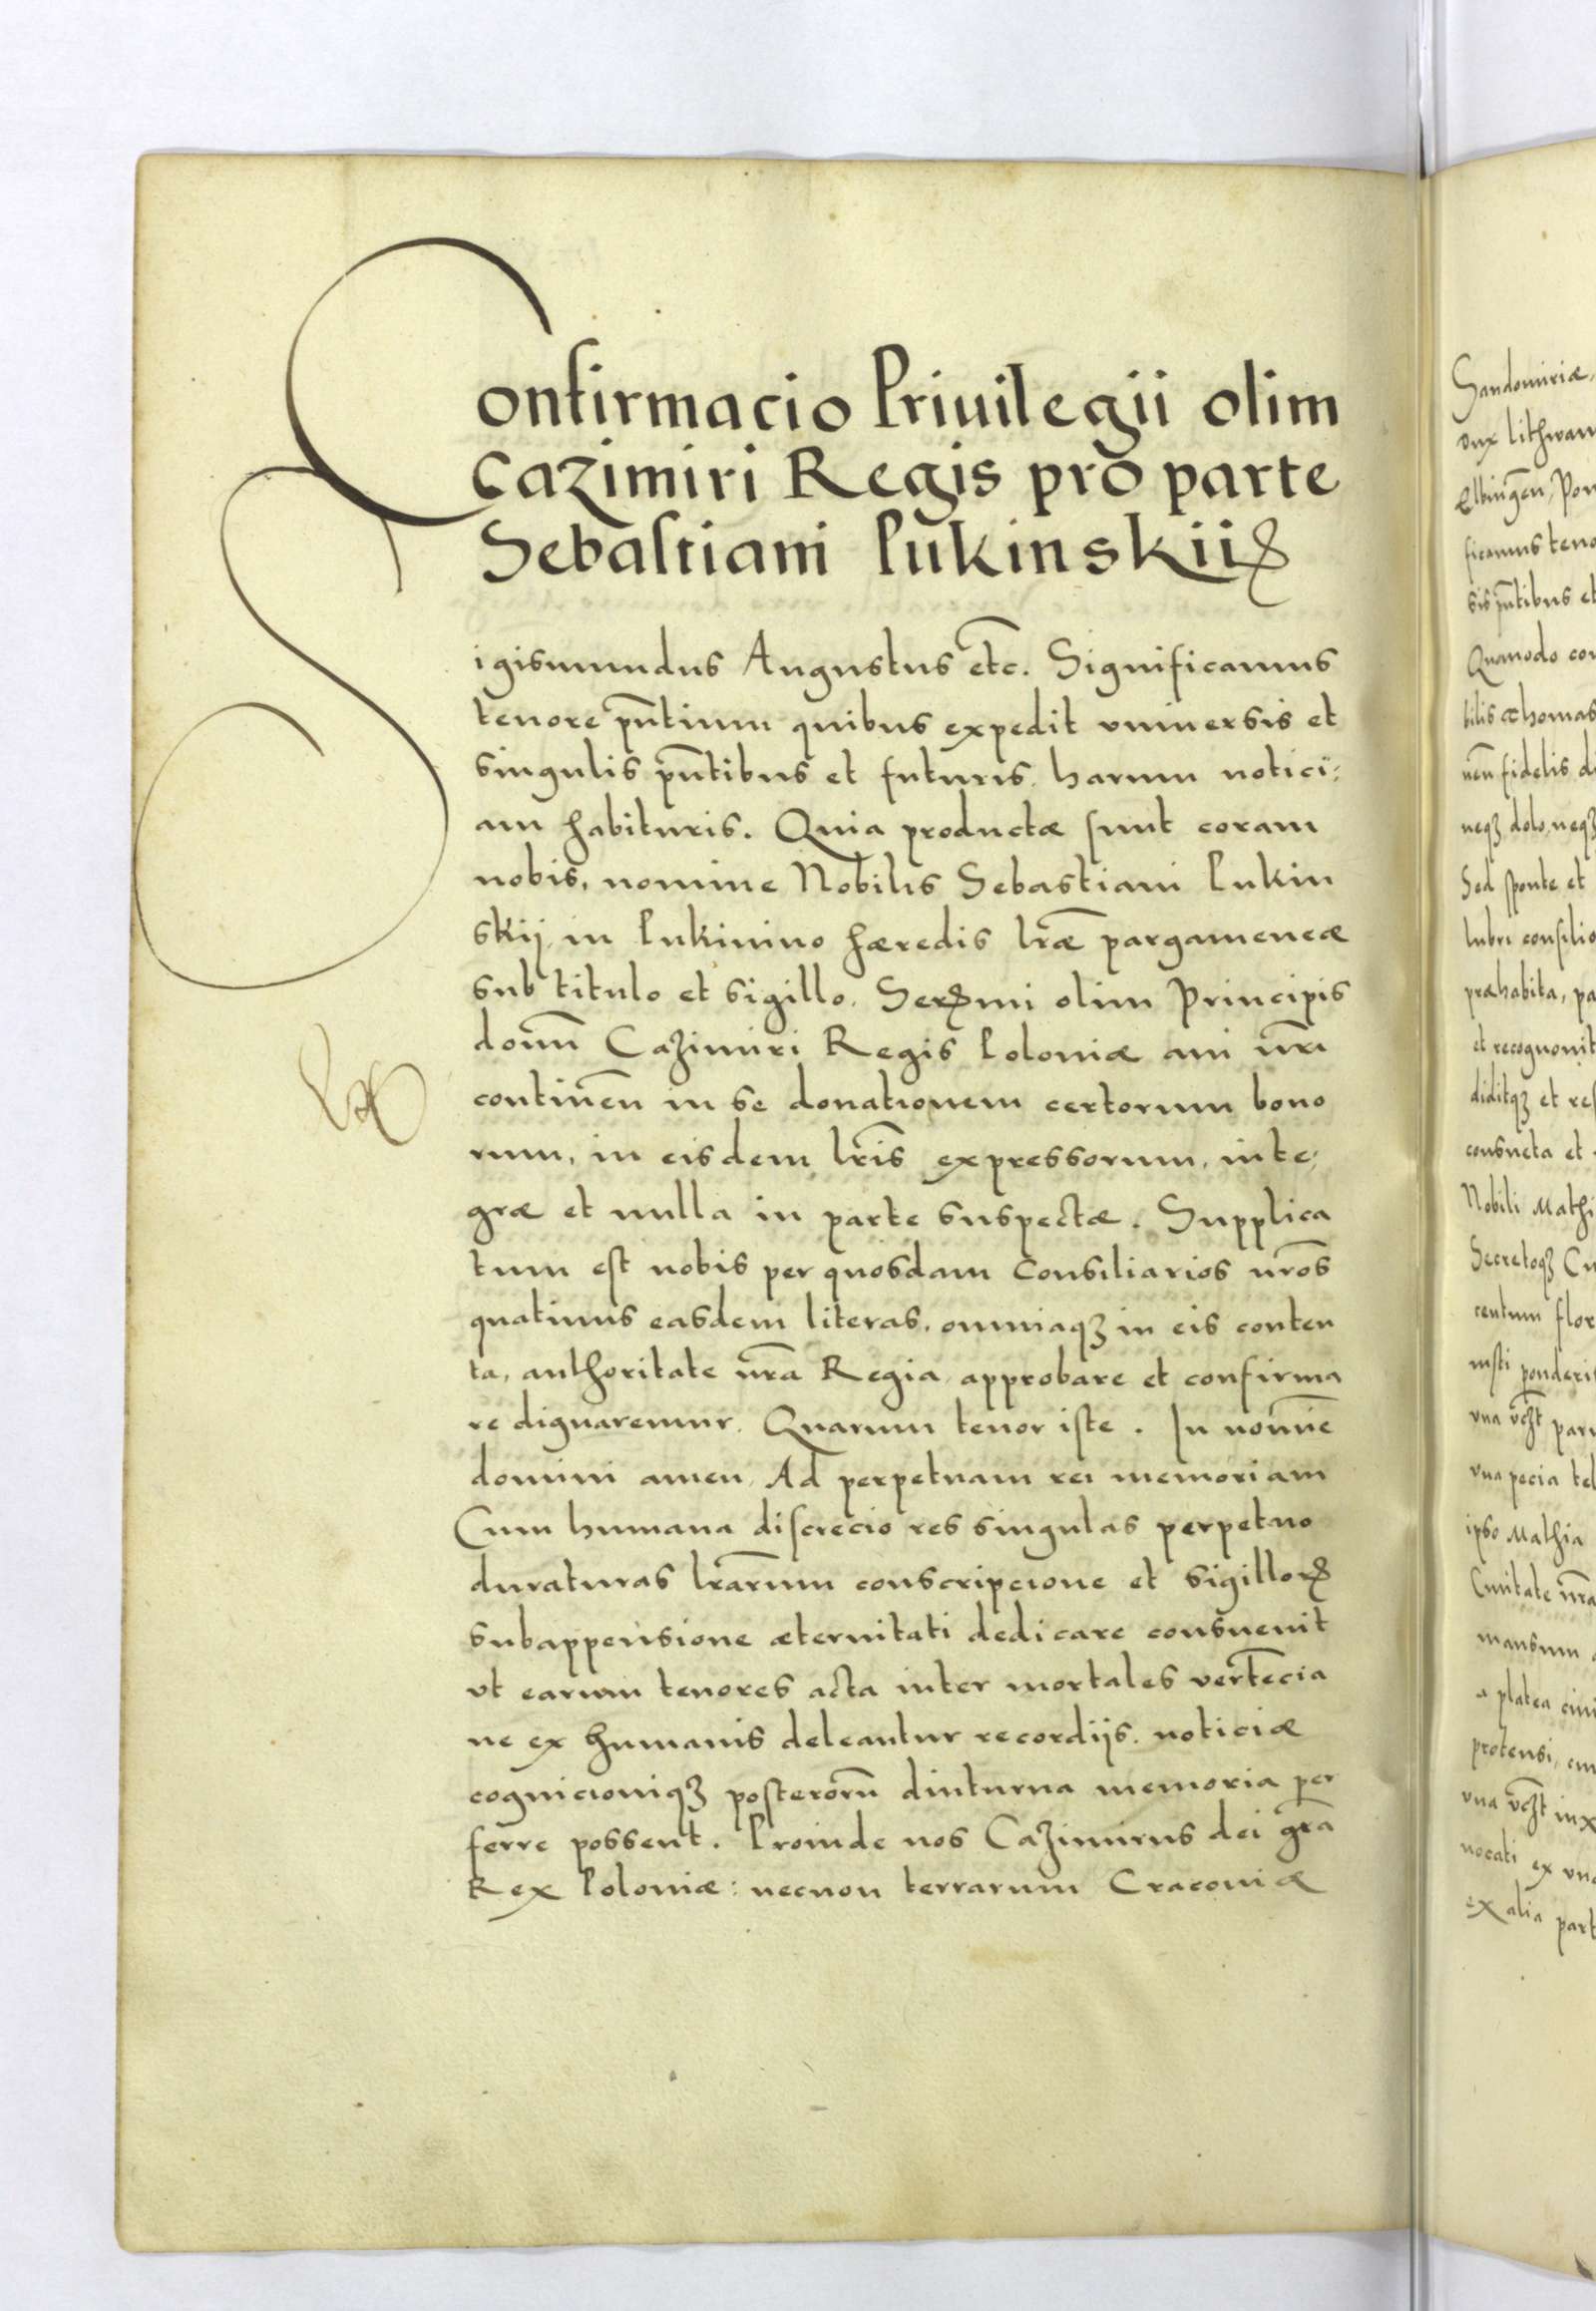 Confirmacio Priuilegii olim
Cazimiri Regis pro parte
Sebastiani Pukinskii
Sigismundus Augustus etc̄. Significamus
tenore pñtium quibus expedit vniuersis et
singulis pñtibus et futuris, harum notici:
am habituris. Quia productæ sunt coram
nobis, nomine Nobilis Sebastiani Pukin
skij, in Pukinino hæredis lr̄æ pargameneæ
sub titulo et sigillo, Serꝭmi olim Principis
domñ Cazimiri Regis Poloniæ aui nr̄i
continen̄ in se donationem certorum bono
rum, in eisdem lr̄is expressorum, inte,
græ et nulla in parte suspectæ. Supplica
tum est nobis per quosdam Consiliarios nr̄os
quatinus easdem literas, omniaqꝫ in eis conten
ta, authoritate nr̄a Regia approbare et confirma
re dignaremur. Quarum tenor iste. In nomīe
domini amen. Ad perpetuam rei memoriam
Cum humana discrecio res singulas perpetuo
duraturas lr̄arum conscripcione et sigilloꝝ
subappensione æternitati dedicare consueuit
vt earum tenores acta inter mortales vertēcia
ne ex humanis deleantur recordijs, noticiæ
cognicioniqꝫ posterorū diuturna memoria per
ferre possent. Proinde nos Cazimirus dei gr̄a
Rex Poloniæ: necnon terrarum Cracouiæ
Sandomiriæ,
dux Lithwan
Elbingen̄, Pom
ficamus teno
sis pñtibus et
Quomodo co
bilis Thomas
fidelis d
neqꝫ dolo, neqꝫ
Sed sponte et
lubri consilio
præhabita, pa
et recognouit
diditqꝫ et re
consueta et
Nobili Mathi
Secretoqꝫ Cu
centum flor
iusti ponderi
vna vcꝫt par
vna pecia te
ipso Mathia
Ciuitate nr̄a
mansum
a platea ciui
protensi, cu
vna vcꝫt iux
uocati ex vna
ex alia part